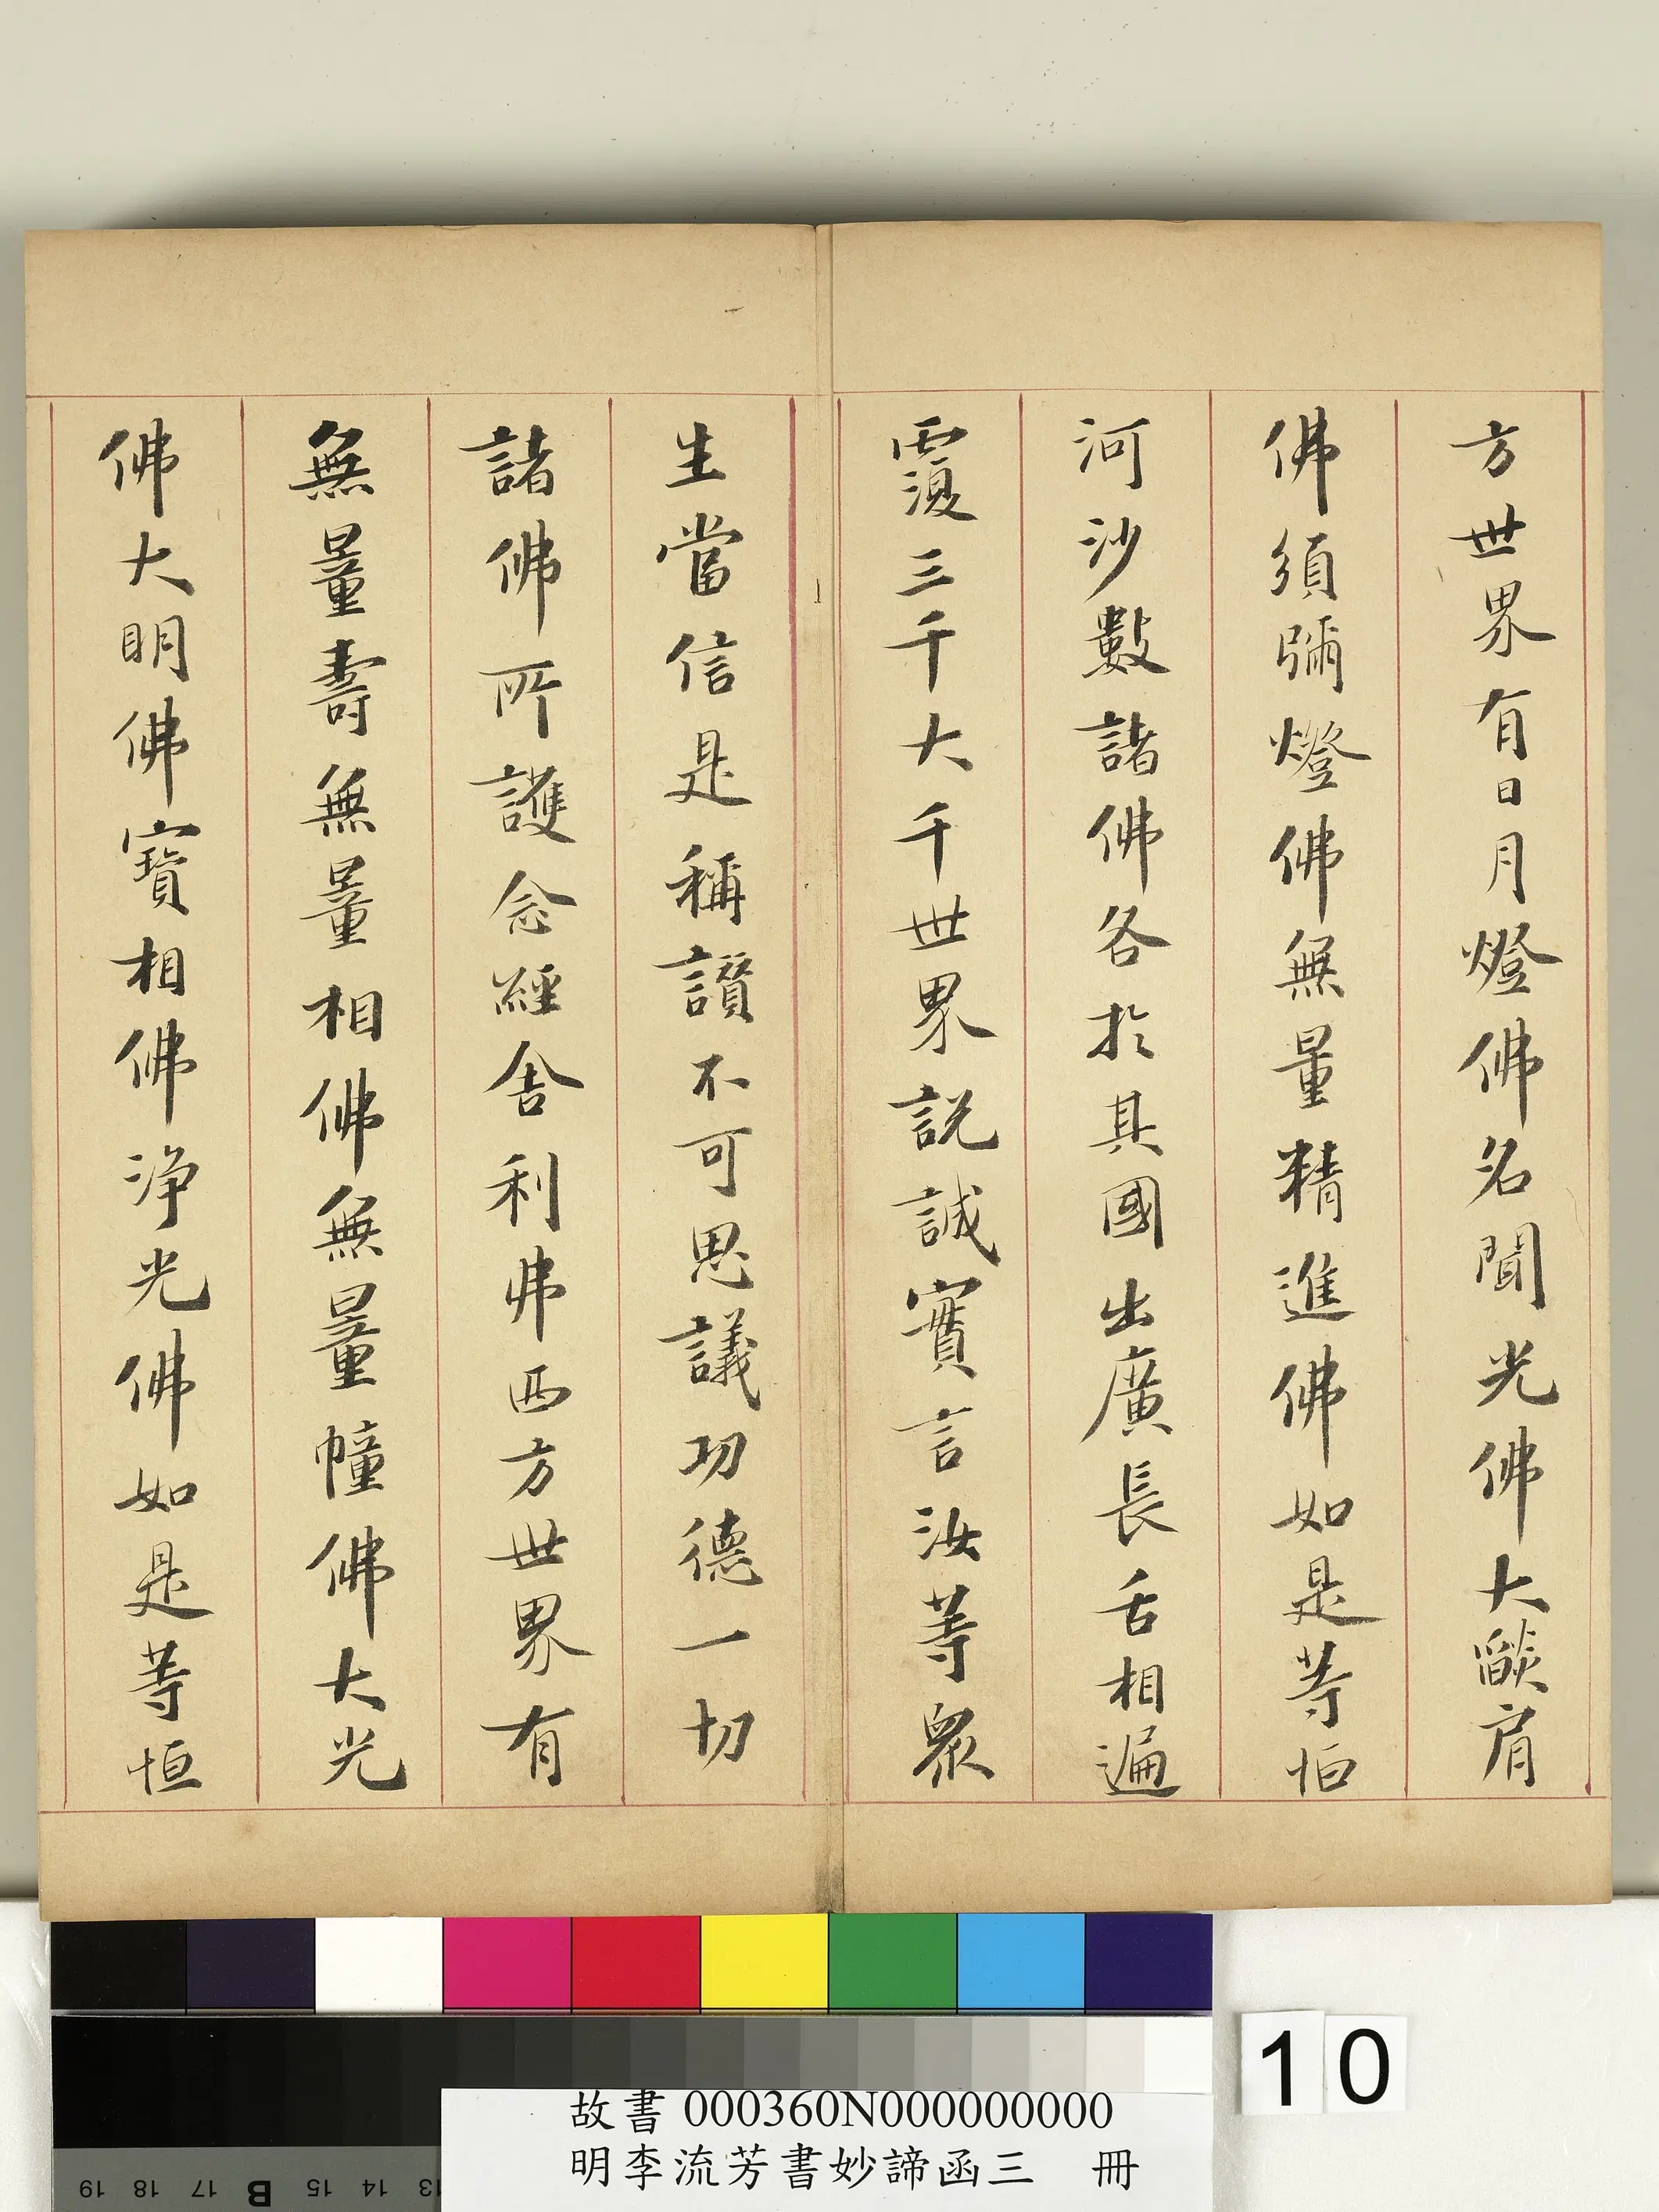 方世界有日月燈佛名聞光佛大燄肩
佛須彌燈佛無量精進佛如是等恒
河沙數諸佛各於其國出廣長舌相遍
覆三千大千世界説誠實言汝等衆
生當信是稱讚不可思議功德一切
諸佛所護念經舍利弗西方世界有
無量壽無量相佛無量幢佛大光
佛大明佛寶相佛淨光佛如是等恒
10
故書 000360N000000000
明李流芳書妙諦函三 冊
19 18 17 B 15 14 13